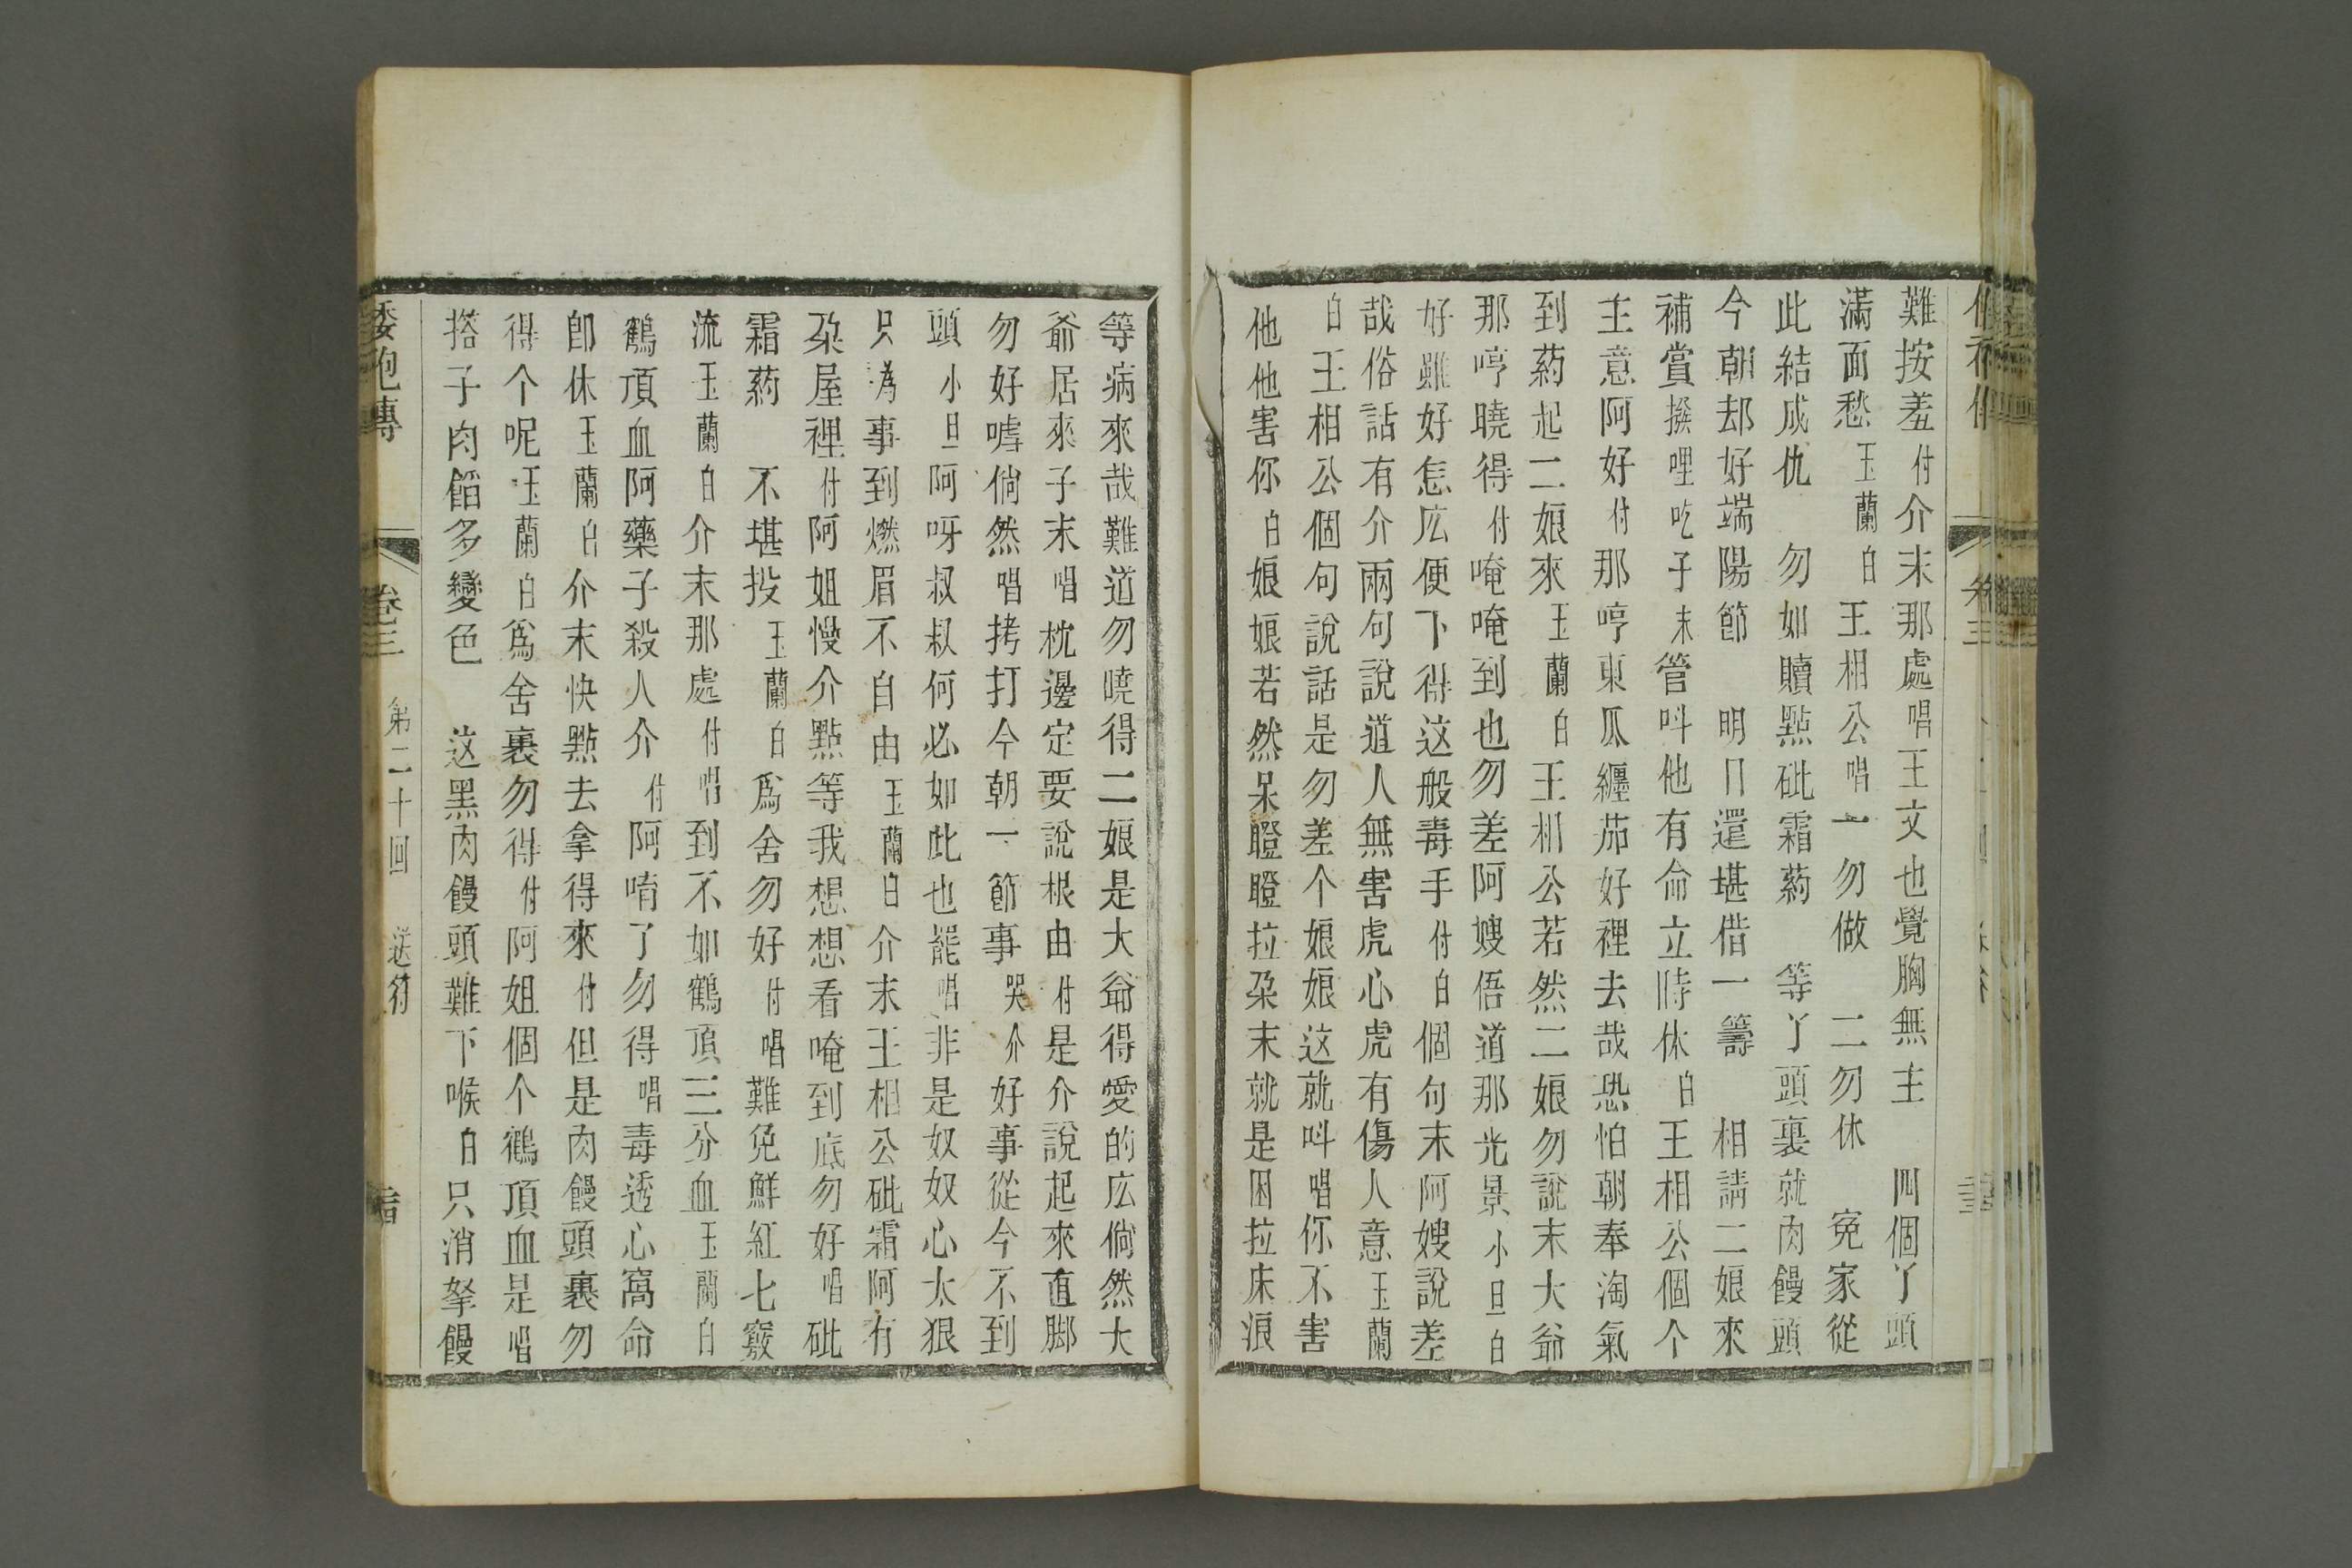 難按羞付介末那處唱王文也覺胸無主 四個丫頭
滿面愁玉蘭白王相公唱一勿做 二勿休 寃家從
此結成仇 勿如贖點砒霜葯 等丫頭裏就肉饅頭
今朝却好端陽節 明日還堪借一籌 相請二娘來
補賞撰哩吃子末管呌他有命立時休白王相公個个
主意阿好付那哼東瓜纏茄好裡去哉恐怕朝奉淘氣
到葯起二娘來玉蘭白王相公若然二娘勿說末大爺
那哼曉得付唵唵到也勿差阿嫂俉道那光景小旦白
好雖好怎庅便下得这般毒手付白個句末阿嫂說差
哉俗話有介兩句說道人無害虎心虎有傷人意玉蘭
白王相公個句說話是勿差个娘娘这就呌唱你不害
他他害你白娘娘若然呆瞪瞪拉朶末就是困拉床浪
等病來哉難道勿曉得二娘是大爺得愛的庅倘然大
爺居來子末唱枕邊定要說根由付是介說起來直脚
勿好嘘倘然唱拷打今朝一節事哭介好事從今不到
頭小旦阿呀叔叔何必如此也罷唱非是奴奴心太狠
只為事到燃眉不自由玉蘭白介末王相公砒霜阿有
朶屋裡付阿姐慢介點等我想想看唵到底勿好唱砒
霜葯 不堪投玉蘭白爲舍勿好付唱難免鮮紅七竅
流玉蘭白介末那處付唱到不如鶴頂三分血玉蘭白
鶴頂血阿藥子殺人介付阿唷了勿得唱毒透心窩命
卽休玉蘭白介末快點去拿得來付但是肉饅頭裏勿
得个呢玉蘭白爲舍裏勿得付阿姐個个鶴頂血是唱
搭子肉餡多變色 这黑肉饅頭難下喉白只消拏饅
倭袍傳 卷三 第二十回 送符